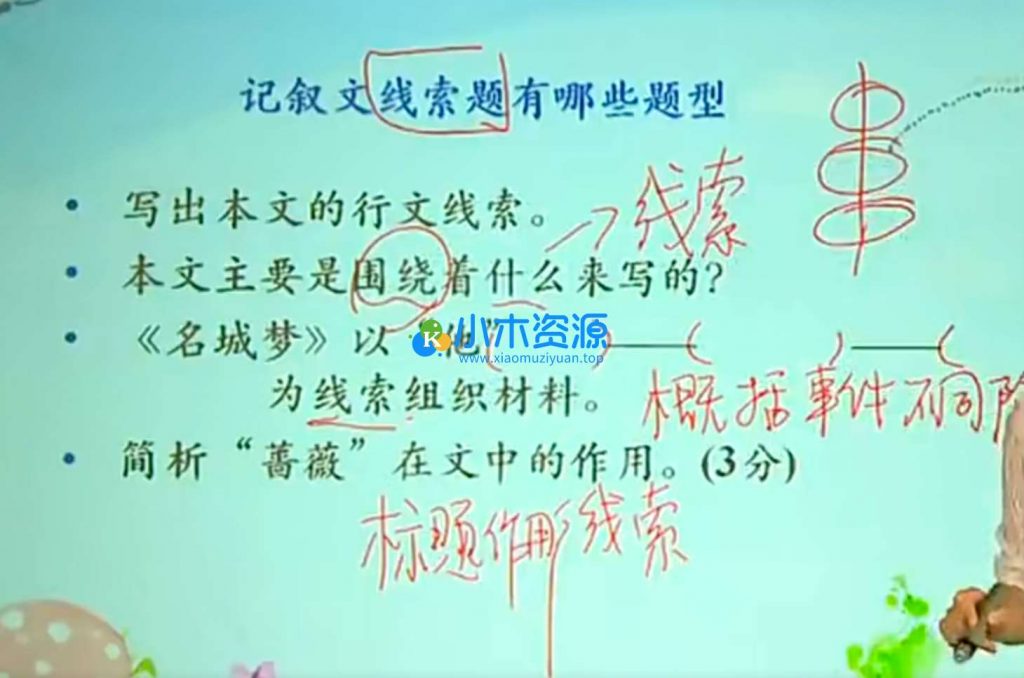 记叙文线索题有哪些题型
• 写出本文的行文线索。
→线索
• 本文主要是围绕着什么来写的？
• 《名城梦》以“他”( )——( )——(
小木资源
www.xiaomuziyuan.top
为线索组织材料。
概括事件不同
• 简析“蔷薇”在文中的作用。(3分)
标题作用 线索